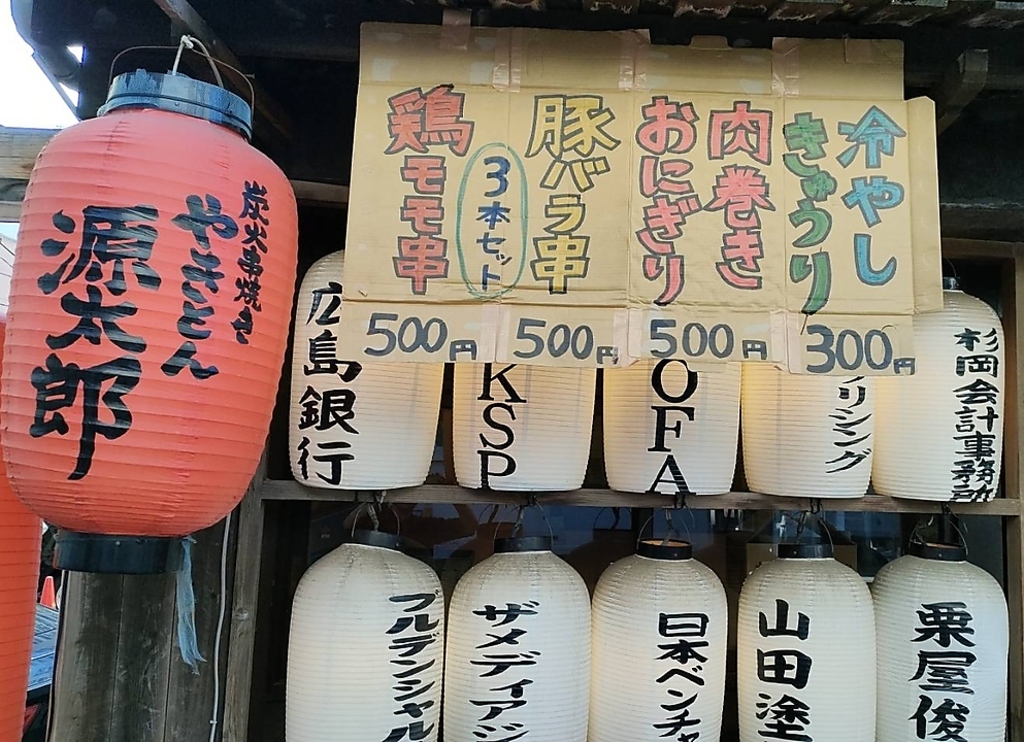 炭火串焼き
やきとん
源太郎
冷やし
きゅうり
300円
肉巻き
おにぎり
500円
豚バラ串
500円
3本セット
鶏モモ串
500円
広島銀行
KSP
OFA
リシング
杉岡会計事務所
プルデンシャル
ザメディアジ
日本ベンチャ
山田塗
栗屋俊